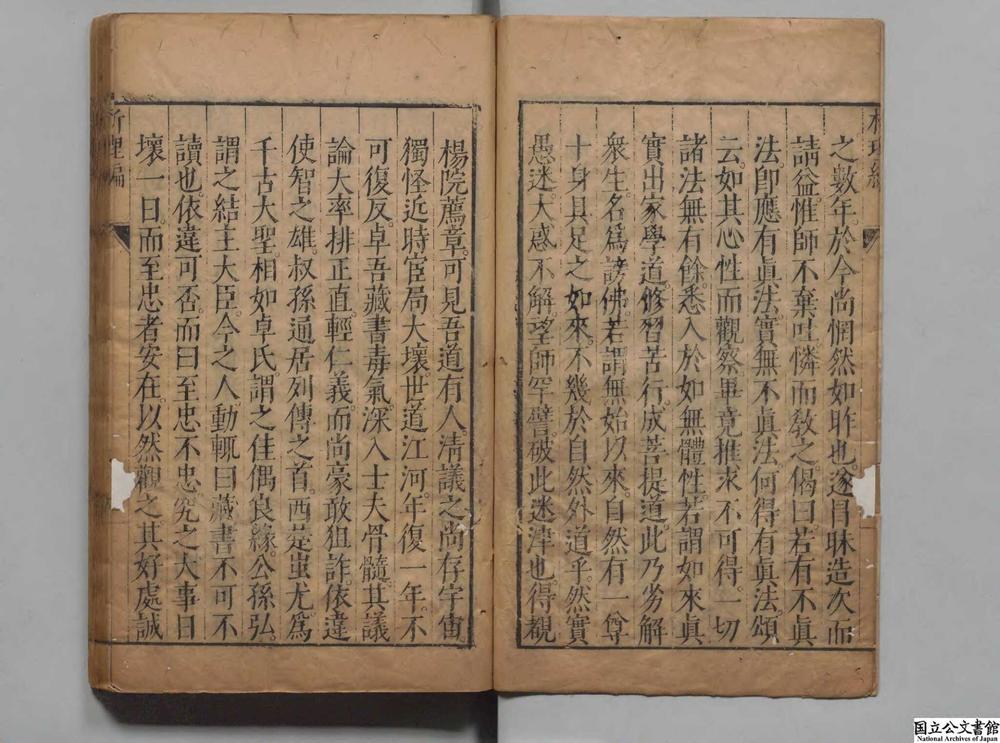 之數年於今尚惘然如昨也。遂冒昧造次而
請益。惟師不棄吐憐而敎之。偈曰。若有不眞
法卽應有眞法。實無不眞法。何得有眞法。頌
云。如其心性而觀察。畢竟推求不可得。一切
諸法無有餘。悉入於如無體性。若謂如來眞
實出家學道。修習苦行。成菩提道。此乃劣解
衆生名爲謗佛。若謂無始以來。自然有一尊
十身具足之如來。不幾於自然外道乎。然實
愚迷大惑不解。望師罕譬。破此迷津也。得覩
楊院薦章。可見吾道有人。淸議之尚存宇宙。
獨怪近時宦局大壞。世道江河。年復一年。不
可復反。卓吾藏書。毒氣深入士夫骨髓。其議
論大率排正直。輕仁義。而尚豪敢狙詐。依違
使智之雄。叔孫通居列傳之首。西楚蚩尤爲
千古大聖。相如卓氏。謂之佳偶良緣。公孫弘
謂之結主大臣。今之人動輒曰藏書不可不
讀也。依違可否而曰至忠不忠。究之大事日
壞一日。而至忠者安在。以然觀之。其好處誠
析理編
国立公文書館
National Archives of Japan